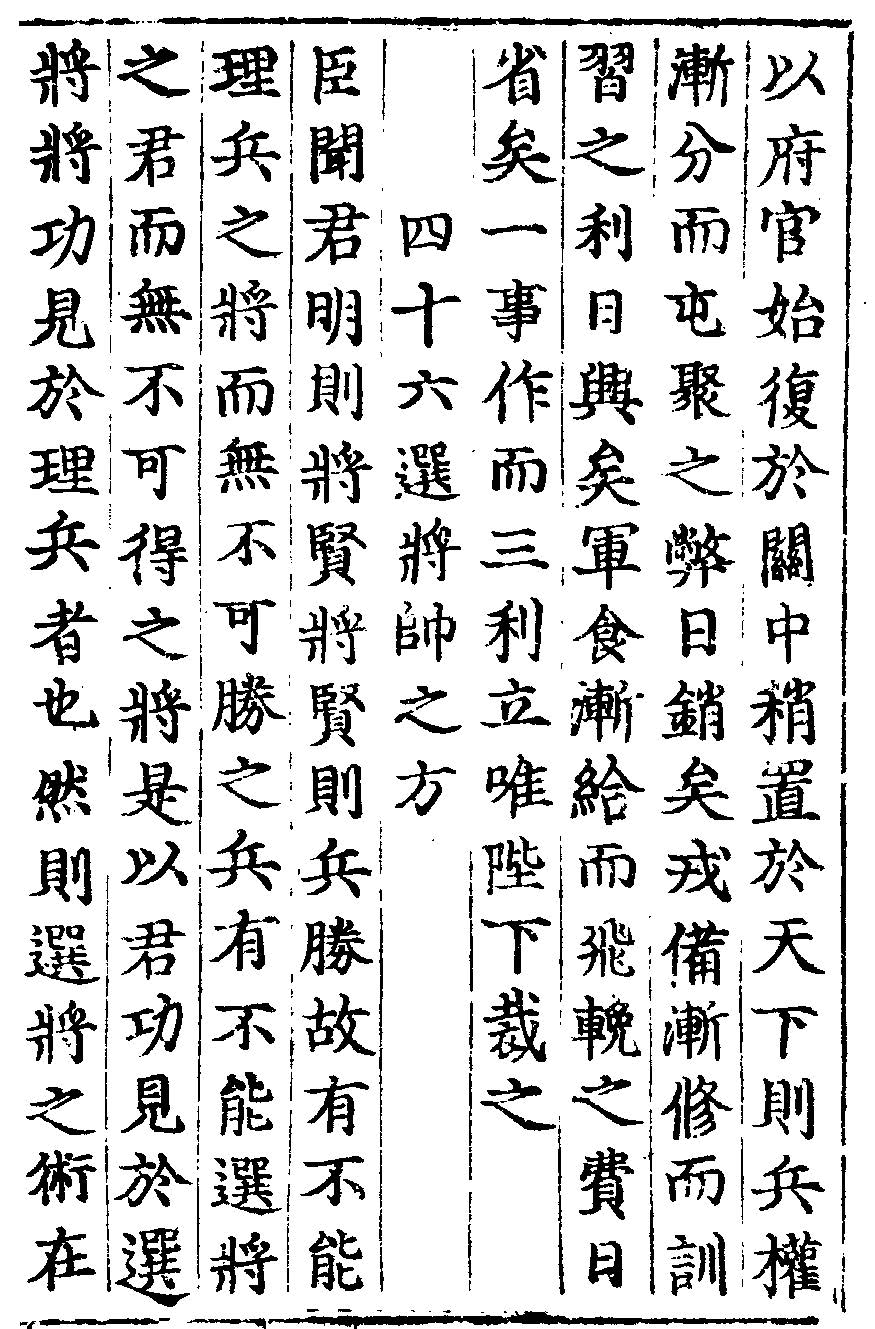 以府官始復於關中稍置於天下則兵權
漸分而屯聚之弊日銷矣戎備漸修而訓
習之利日興矣軍食漸給而飛輓之費日
省矣一事作而三利立唯陛下裁之
四十六選將帥之方
臣聞君明則將賢將賢則兵勝故有不能
理兵之將而無不可勝之兵有不能選將
之君而無不可得之將是以君功見於選
將將功見於理兵者也然則選將之術在